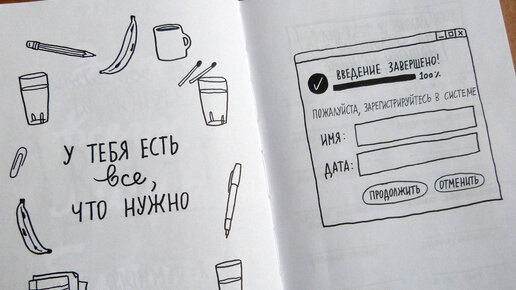 У ТЕБЯ ЕСТЬ
все,
ЧТО НУЖНО
ВВЕДЕНИЕ ЗАВЕРШЕНО!
100%
ПОЖАЛУЙСТА, ЗАРЕГИСТРИРУЙТЕСЬ В СИСТЕМЕ
ИМЯ:
ДАТА:
ПРОДОЛЖИТЬ
ОТМЕНИТЬ